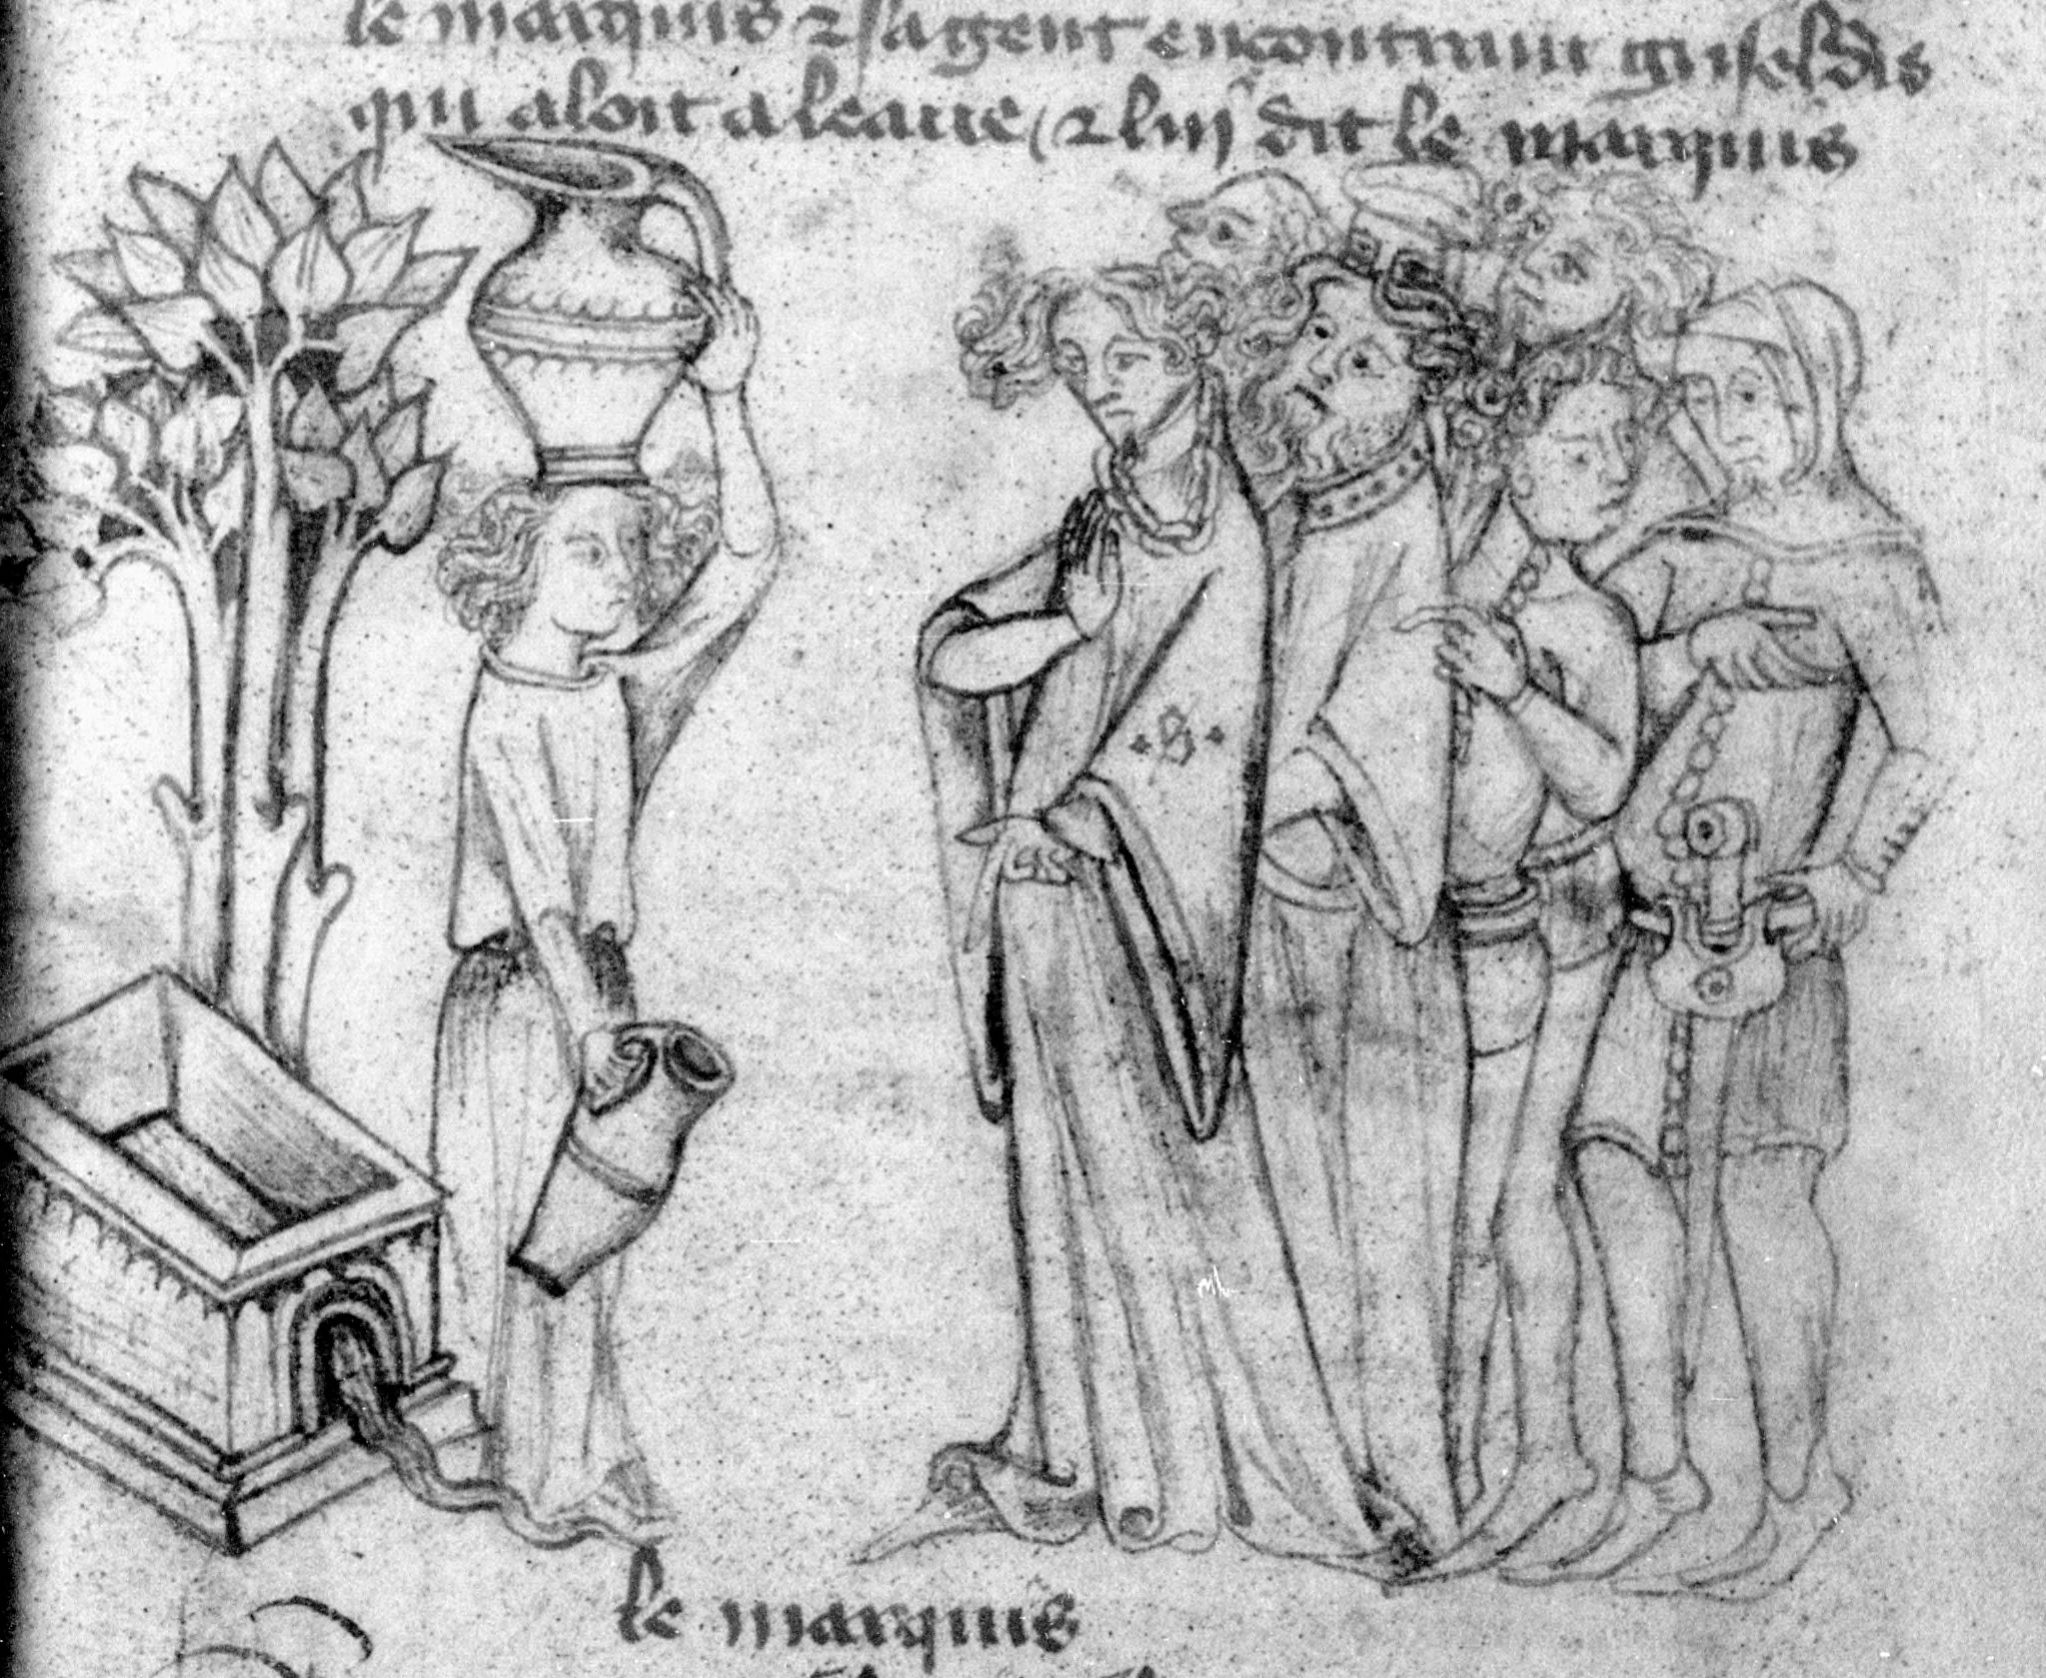 le marquis ⁊ sa gent encontrant griseldis
qui aloit a leaue / ⁊ luy dit le marquis
le marquis